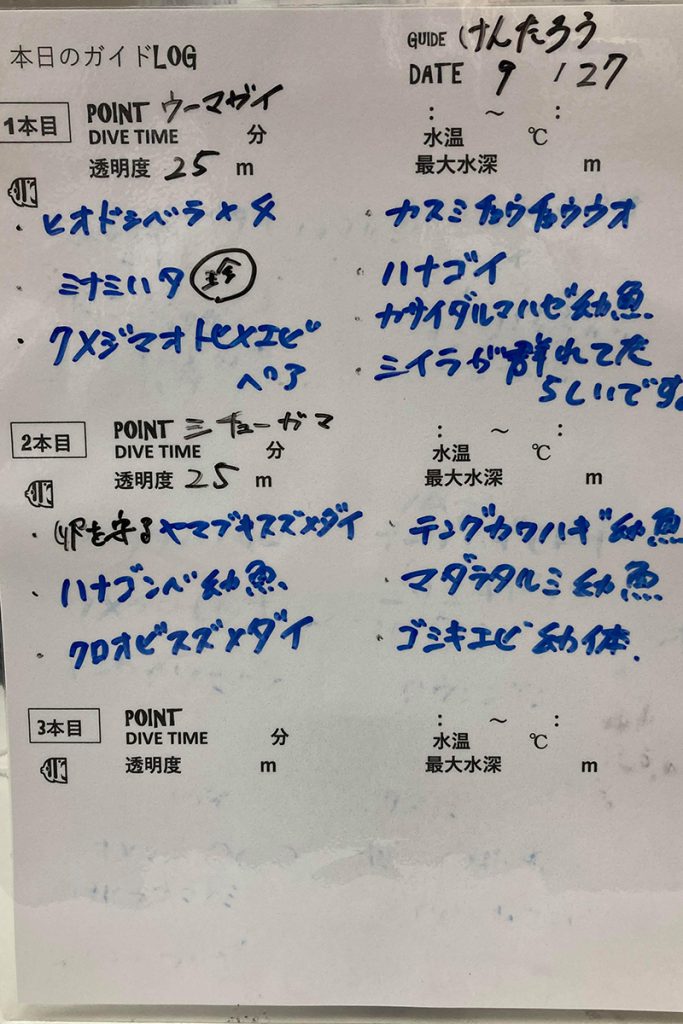 本日のガイドLOG
GUIDE けんたろう
DATE 9 / 27
1本目 POINT ウーマガイ : ～ :
DIVE TIME 分 水温 ℃
透明度 25 m 最大水深 m
・ヒオドシベラメス ・カスミチョウチョウウオ
・ミナミハタ 珍 ・ハナゴイ
・カサイダルマハゼ幼魚
・クメジマオトヒメエビ ・ミイラが群れてた
ペア らしいです。
2本目 POINT ミチューガマ : ～ :
DIVE TIME 分 水温 ℃
透明度 25 m 最大水深 m
・卵を守るヤマブキスズメダイ ・テングカワハギ幼魚
・ハナゴンベ幼魚 ・マダラタルミ幼魚
・クロオビスズメダイ ・ゴシキエビ幼体
3本目 POINT : ～ :
DIVE TIME 分 水温 ℃
透明度 m 最大水深 m